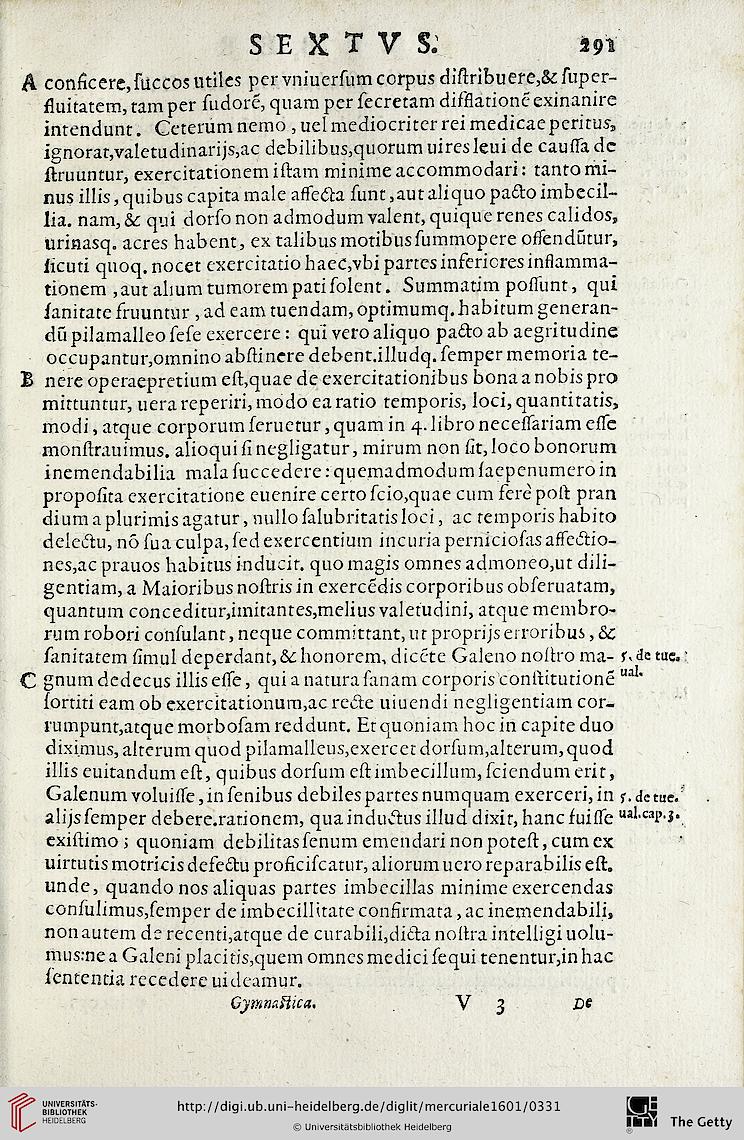 SEXTVS. 291
A conficere, ſuccos utiles per vniuerſum corpus diſtribuere,& ſuper-
fluitatem, tam per ſudorē, quam per ſecretam difflationē exinanire
intendunt. Ceterum nemo, uel mediocriter rei medicae peritus,
ignorat,valetudinarijs,ac debilibus,quorum uires leui de cauſſa de
ſtruuntur, exercitationem iſtam minime accommodari: tanto mi-
nus illis, quibus capita male affecta ſunt, aut aliquo pacto imbecil-
lia. nam, & qui dorſo non admodum valent, quique renes calidos,
urinasq. acres habent, ex talibus motibus ſummopere offendūtur,
ſicuti quoq. nocet exercitatio haec,vbi partes inferiores inflamma-
tionem, aut alium tumorem pati ſolent. Summatim poſſunt, qui
ſanitate fruuntur, ad eam tuendam, optimumq. habitum generan-
dū pilamalleo ſeſe exercere: qui vero aliquo pacto ab aegritudine
occupantur,omnino abſtinere debent.illudq. ſemper memoria te-
B nere operaepretium eſt,quae de exercitationibus bona a nobis pro
mittuntur, uera reperiri, modo ea ratio temporis, loci, quantitatis,
modi, atque corporum ſeruetur, quam in 4. libro neceſſariam eſſe
monſtrauimus. alioqui ſi negligatur, mirum non ſit, loco bonorum
inemendabilia mala ſuccedere: quemadmodum ſaepenumero in
propoſita exercitatione euenire certo ſcio,quae cum ferè poſt pran
dium a plurimis agatur, nullo ſalubritatis loci, ac temporis habito
delectu, nō ſua culpa, ſed exercentium incuria pernicioſas affectio-
nes,ac prauos habitus inducit. quo magis omnes admoneo,ut dili-
gentiam, a Maioribus noſtris in exercēdis corporibus obſeruatam,
quantum conceditur,imitantes,melius valetudini, atque membro-
rum robori conſulant, neque committant, ut proprijs erroribus, &
ſanitatem ſimul deperdant, & honorem, dicēte Galeno noſtro ma- 5. de tue.
C gnum dedecus illis eſſe, qui a natura ſanam corporis conſtitutionē ual.
ſortiti eam ob exercitationum,ac recte uiuendi negligentiam cor-
rumpunt,atque morboſam reddunt. Et quoniam hoc in capite duo
diximus, alterum quod pilamalleus,exercet dorſum,alterum, quod
illis euitandum eſt, quibus dorſum eſt imbecillum, ſciendum erit,
Galenum voluiſſe, in ſenibus debiles partes numquam exerceri, in 5. de tue.
alijs ſemper debere.rationem, qua inductus illud dixit, hanc fuiſſe ual.cap.3.
exiſtimo; quoniam debilitas ſenum emendari non poteſt, cum ex
uirtutis motricis defectu proficiſcatur, aliorum uero reparabilis eſt.
unde, quando nos aliquas partes imbecillas minime exercendas
conſulimus,ſemper de imbecillitate confirmata, ac inemendabili,
non autem de recenti,atque de curabili,dicta noſtra intelligi uolu-
mus:ne a Galeni placitis,quem omnes medici ſequi tenentur,in hac
ſententia recedere uideamur.
Gymnaſtica. V 3 De
UNIVERSITÄTS-
BIBLIOTHEK
HEIDELBERG
http://digi.ub.uni-heidelberg.de/diglit/mercuriale1601/0331
© Universitätsbibliothek Heidelberg
The Getty